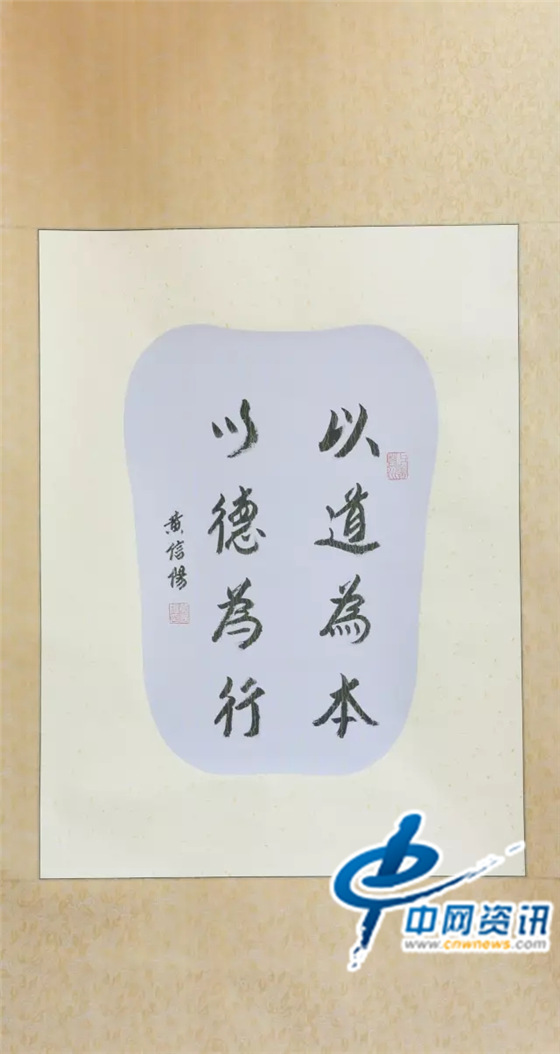 以道為本
以德為行
黄信陽
中网资讯
www.cnwnews.com